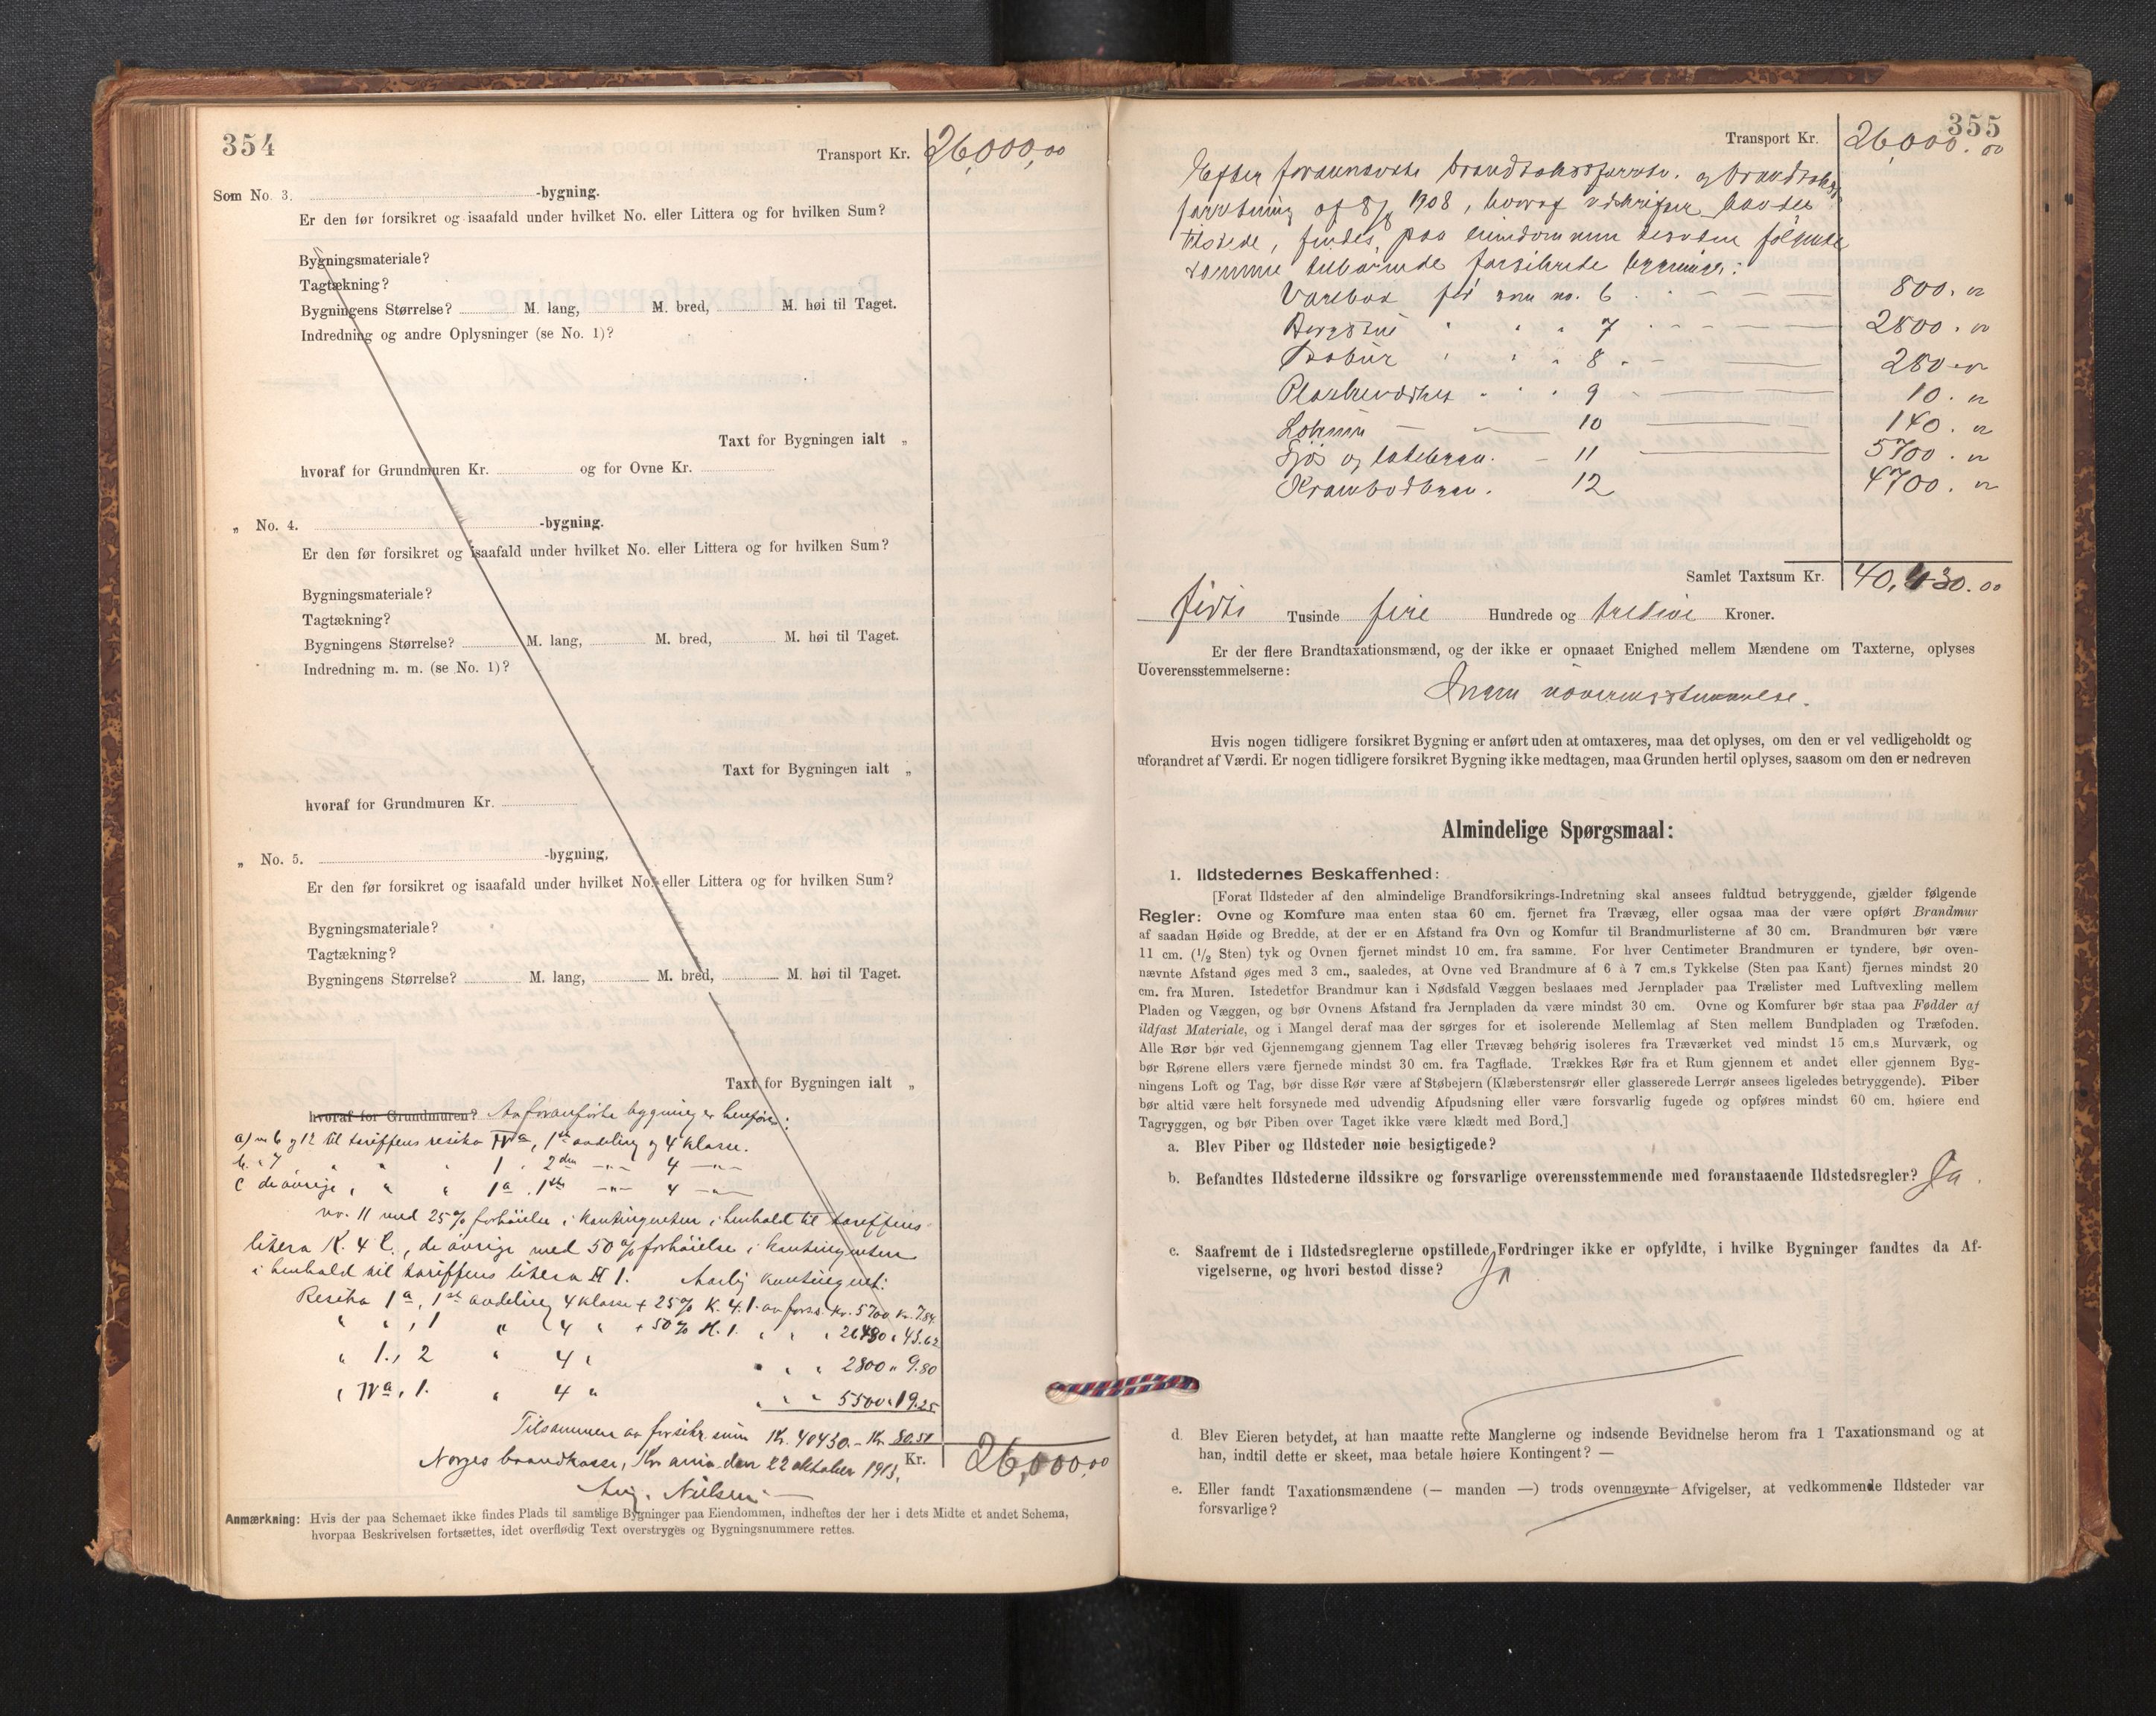 354
Transport Kr. 26,000,00
Som No. 3. -bygning.
Er den før forsikret og isaafald under hvilket No. eller Littera og for hvilken Sum?
Bygningsmateriale?
Tagtækning?
Bygningens Størrelse? M. lang, M. bred, M. høi til Taget.
Indredning og andre Oplysninger (se No. 1)?
Taxt for Bygningen ialt „
hvoraf for Grundmuren Kr. og for Ovne Kr.
„ No. 4. -bygning.
Er den før forsikret og isaafald under hvilket No. eller Littera og for hvilken Sum?
Bygningsmateriale?
Tagtækning?
Bygningens Størrelse? M. lang, M. bred, M. høi til Taget.
Indredning m. m. (se No. 1)?
Taxt for Bygningen ialt „
hvoraf for Grundmuren Kr.
„ No. 5. -bygning.
Er den før forsikret og isaafald under hvilket No. eller Littera og for hvilken Sum?
Bygningsmateriale?
Tagtækning?
Bygningens Størrelse? M. lang, M. bred, M. høi til Taget.
Taxt for Bygningen ialt „
hvoraf for Grundmuren? Av foranførte bygning er henført:
a) no 6 og 12 til tariffens resiko IVa, 1ste avdeling og 4 klasse.
b. „ 7 „ „ „ 1 „ 2den —„— 4 —„—
c de øvrige „ „ „ 1a „ 1ste —„— 4 —„—
no. 11 med 25% forhøielse i kontingenten i henhold til tariffens
litera K. 4 l., de øvrige med 50% forhøielse i kontingenten
i henhold til tariffens litera H 1. Aarlig kontingent:
Resiko 1a, 1ste avdeling 4 klasse + 25% K. 4. l. av fors.s. Kr. 5700 Kr. 7.84
„ „, 1 „ 4 „ + 50% H. 1. „ „ „ 26430 „ 43.62
„ 1., 2 „ 4 „ „ „ „ 2800 „ 9.80
„ IVa, 1. „ 4 „ „ „ „ 5500 „ 19.25
Tilsammen av forsikr.sum Kr. 40430.- Kr. 80.51
Norges brandkasse, Kr.ania den 22 oktober 1913.
Kr. 26,000,00
Aug. Nielsen
Anmærkning: Hvis der paa Schemaet ikke findes Plads til samtlige Bygninger paa Eiendommen, indheftes der her i dets Midte et andet Schema,
hvorpaa Beskrivelsen fortsættes, idet overflødig Text overstryges og Bygningsnummere rettes.
355
Transport Kr. 26,000.00
Efter forannævnte brandtakstforretn. og brandtakst
forretning af 8/8 1908, hvoraf udskrifter havdes
tilstede, findes paa eiendommen desuden følgende
samme tilhørende forsikrede bygninger:
Varebod før som no. 6 800.00
„ „ „ 7 2800.00
„ „ „ 8 280.00
„ „ 9 10.00
10 140.00
Fjøs og ladebygn. 11 5700.00
Krambodbygn. 12 4700.00
Samlet Taxtsum Kr. 40.430.00
Firti Tusinde fire Hundrede og tredive Kroner.
Er der flere Brandtaxationsmænd, og der ikke er opnaaet Enighed mellem Mændene om Taxterne, oplyses
Uoverensstemmelserne:
Ingen uoverensstemmelse.
Hvis nogen tidligere forsikret Bygning er anført uden at omtaxeres, maa det oplyses, om den er vel vedligeholdt og
uforandret af Værdi. Er nogen tidligere forsikret Bygning ikke medtagen, maa Grunden hertil oplyses, saasom om den er nedreven
Almindelige Spørgsmaal:
1. Ildstedernes Beskaffenhed:
[Forat Ildsteder af den almindelige Brandforsikrings-Indretning skal ansees fuldtud betryggende, gjælder følgende
Regler: Ovne og Komfure maa enten staa 60 cm. fjernet fra Trævæg, eller ogsaa maa der være opført Brandmur
af saadan Høide og Bredde, at der er en Afstand fra Ovn og Komfur til Brandmurlisterne af 30 cm. Brandmuren bør være
11 cm. (1/2 Sten) tyk og Ovnen fjernet mindst 10 cm. fra samme. For hver Centimeter Brandmuren er tyndere, bør oven-
nævnte Afstand øges med 3 cm., saaledes, at Ovne ved Brandmure af 6 à 7 cm.s Tykkelse (Sten paa Kant) fjernes mindst 20
cm. fra Muren. Istedetfor Brandmur kan i Nødsfald Væggen beslaaes med Jernplader paa Trælister med Luftvexling mellem
Pladen og Væggen, og bør Ovnens Afstand fra Jernpladen da være mindst 30 cm. Ovne og Komfurer bør staa paa Fødder af
ildfast Materiale, og i Mangel deraf maa der sørges for et isolerende Mellemlag af Sten mellem Bundpladen og Træfoden.
Alle Rør bør ved Gjennemgang gjennem Tag eller Trævæg behørig isoleres fra Træværket ved mindst 15 cm.s Murværk, og
bør Rørene ellers være fjernede mindst 30 cm. fra Tagflade. Trækkes Rør fra et Rum gjennem et andet eller gjennem Byg-
ningens Loft og Tag, bør disse Rør være af Støbejern (Klæberstensrør eller glasserede Lerrør ansees ligeledes betryggende). Piber
bør altid være helt forsynede med udvendig Afpudsning eller være forsvarlig fugede og opføres mindst 60 cm. høiere end
Tagryggen, og bør Piben over Taget ikke være klædt med Bord.]
a. Blev Piber og Ildsteder nøie besigtigede?
b. Befandtes Ildstederne ildssikre og forsvarlige overensstemmende med foranstaaende Ildstedsregler? Ja.
c. Saafremt de i Ildstedsreglerne opstillede Fordringer ikke er opfyldte, i hvilke Bygninger fandtes da Af-
vigelserne, og hvori bestod disse? Ja
d. Blev Eieren betydet, at han maatte rette Manglerne og indsende Bevidnelse herom fra 1 Taxationsmand og at
han, indtil dette er skeet, maa betale høiere Kontingent? —
e. Eller fandt Taxationsmændene (— manden —) trods ovennævnte Afvigelser, at vedkommende Ildsteder var
forsvarlige?